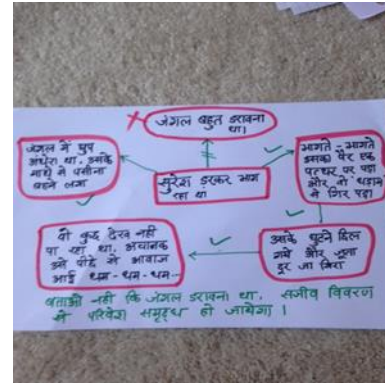 जंगल बहुत डरावना
था।
जंगल में घुप
अंधेरा था. उसके
माथे से पसीना
बहने लगा
सुरेश डरकर भाग
रहा था
भागते-भागते
उसका पैर एक
पत्थर पर पड़ा
और वो धड़ाम
से गिर पड़ा
वो कुछ देख नहीं
पा रहा था. अचानक
उसे पीछे से आवाज
आई धम-धम-धम--
घुटने छिल
गये और जूता
दूर जा गिरा
बताओ नहीं कि जंगल डरावना था. सजीव विवरण
से परिवेश समृद्ध हो जायेगा।